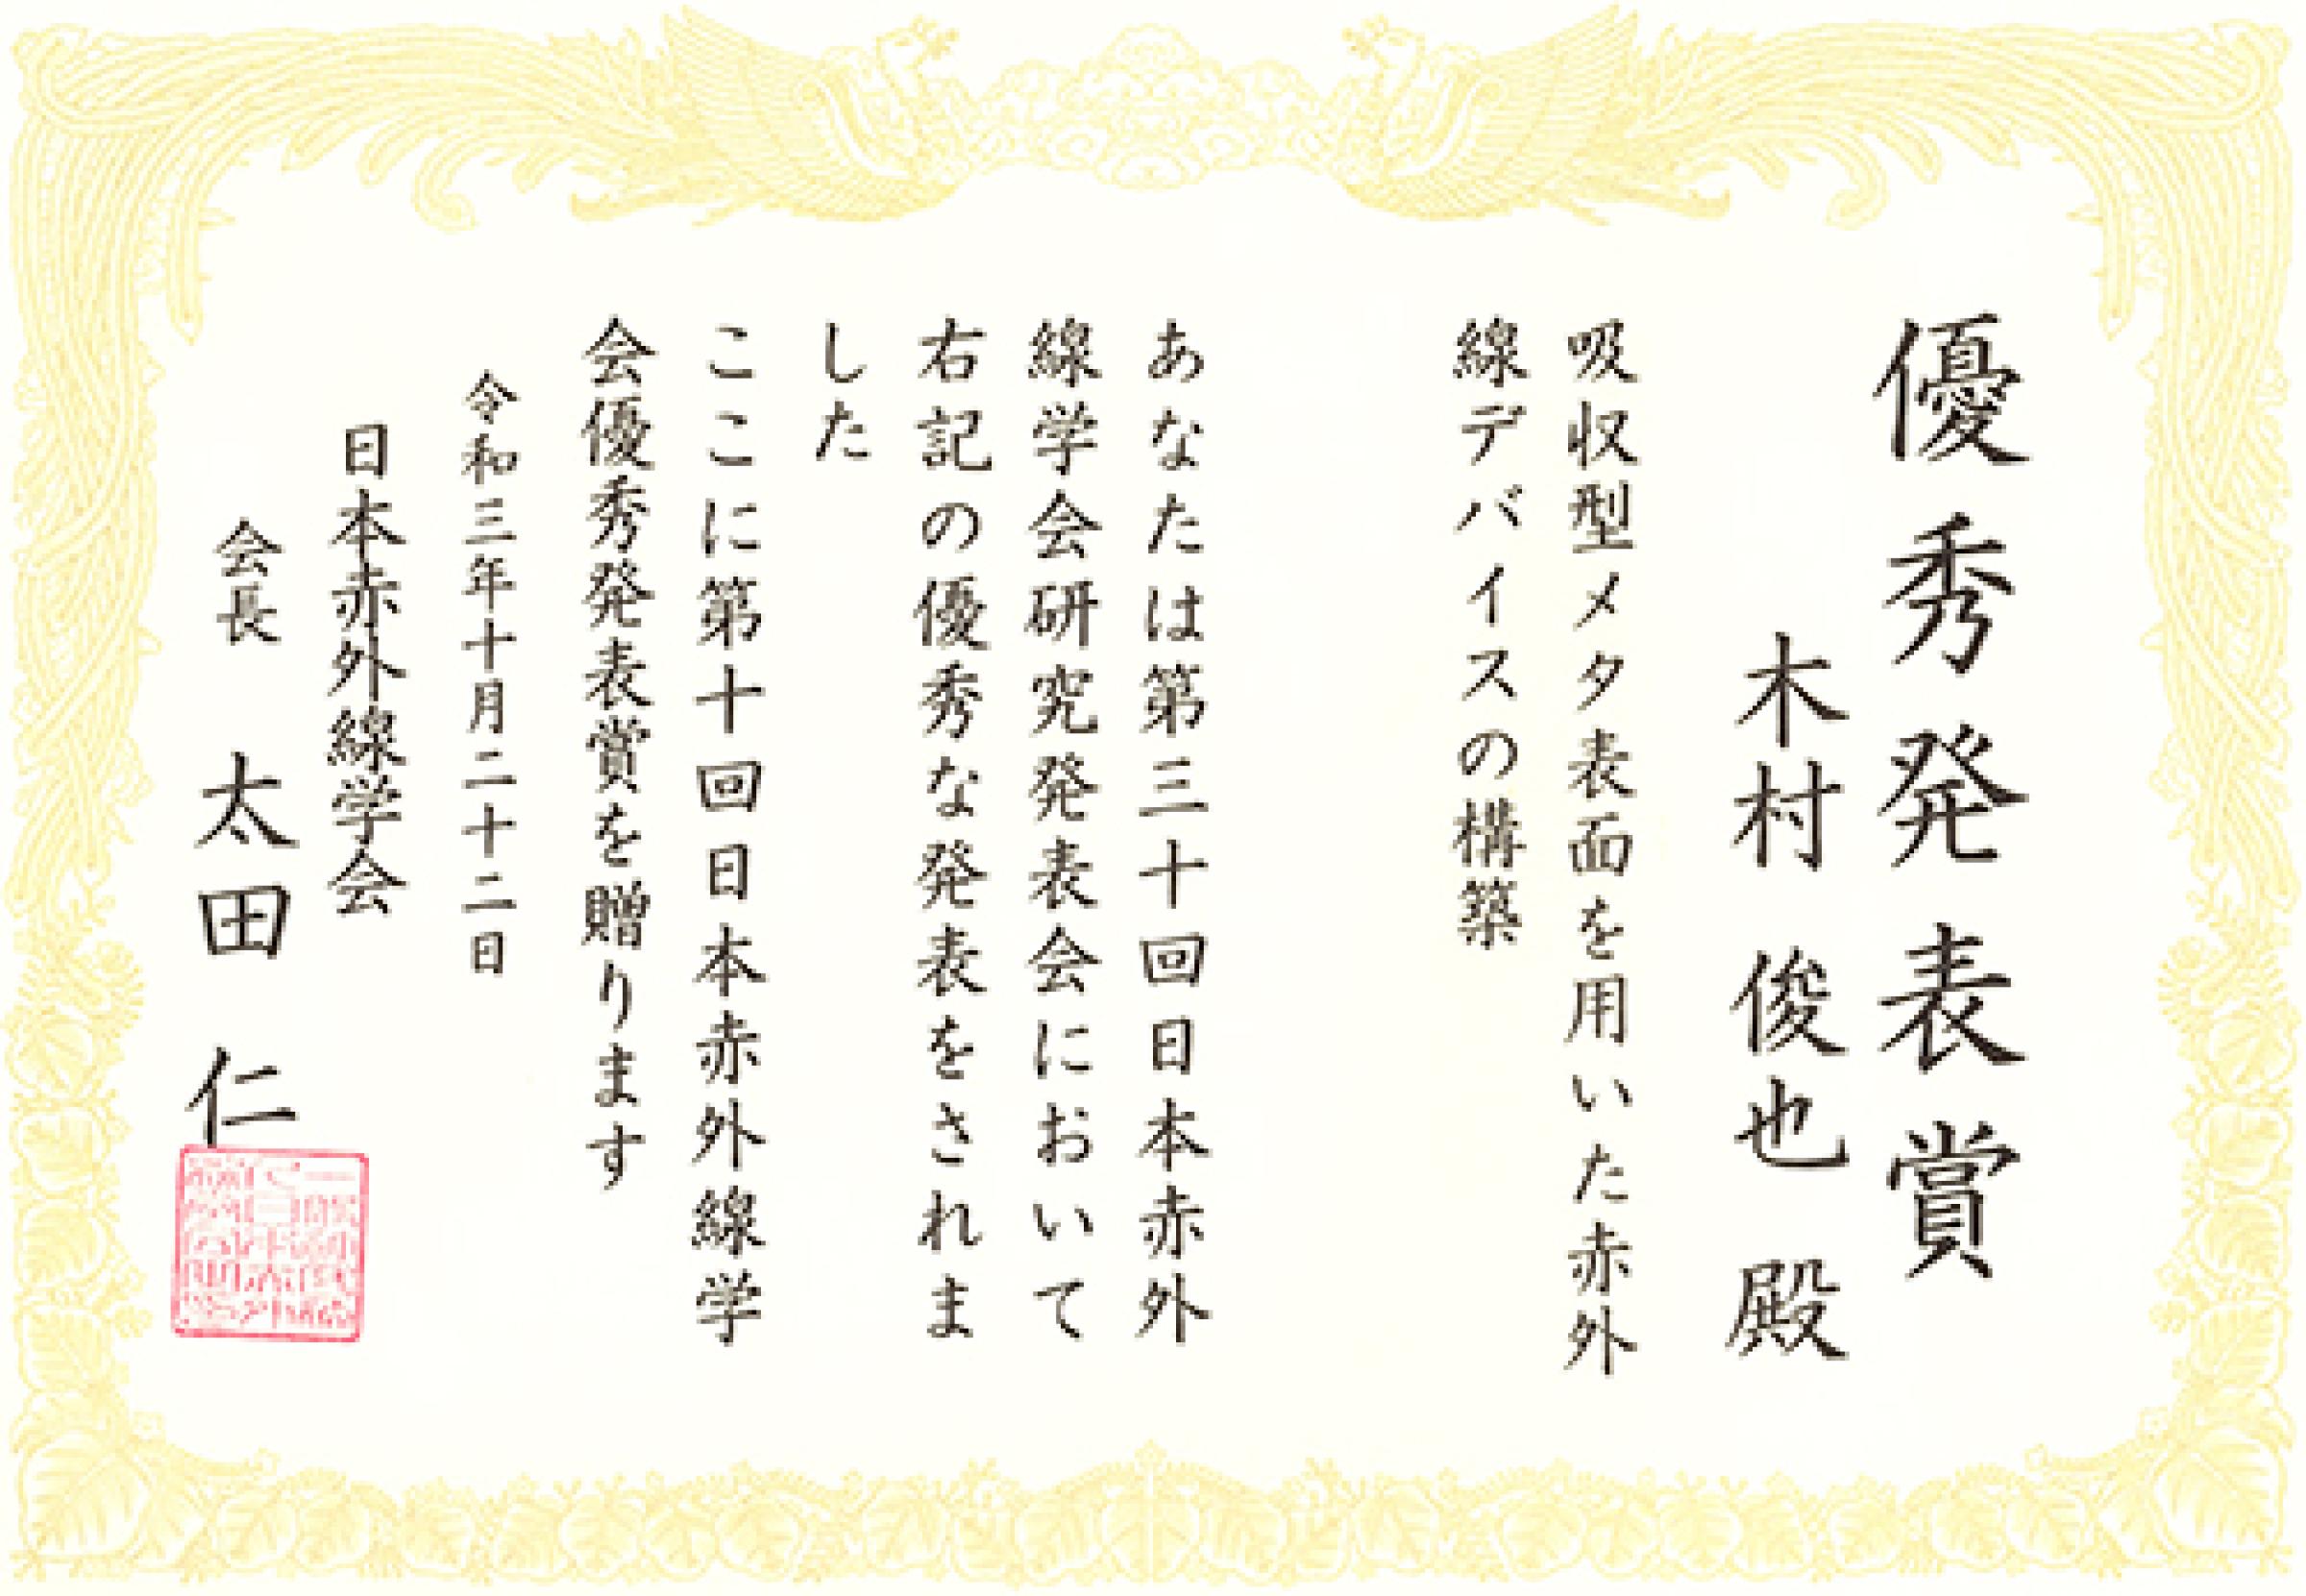 優秀発表賞
木村 俊也 殿
吸収型メタ表面を用いた赤外
線デバイスの構築
あなたは第三十回日本赤外
線学会研究発表会において
右記の優秀な発表をされま
した
ここに第十回日本赤外線学
会優秀発表賞を贈ります
令和三年十月二十二日
日本赤外線学会
会長 太田 仁